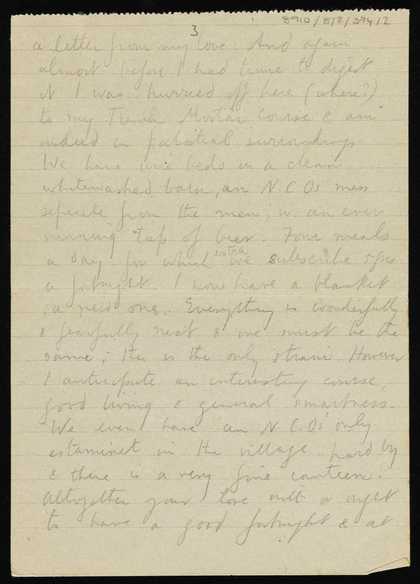 8910/5/2/294/2
3
a letter from my love. And again
almost before I had time to digest
it I was hurried off here (where?)
to my Trench Mortar Course & am
indeed in palatial surroundings
We have wire beds in a clean
whitewashed barn, an N.C.Os mess
seperate from the men, w. an ever
running tap of beer. Four meals
a day for which we subscribe extra 5frs
a fortnight. I now have a blanket
, a new one. Everything is wonderfully
& fearfully neat & one must be the
same; this is the only strain. However
I anticipate an interesting course,
good living & general smartness.
We even have an N.C.Os' only
estaminet in the village hard by
& there is a very fine canteen.
Altogether your love ought
to have a good fortnight & at